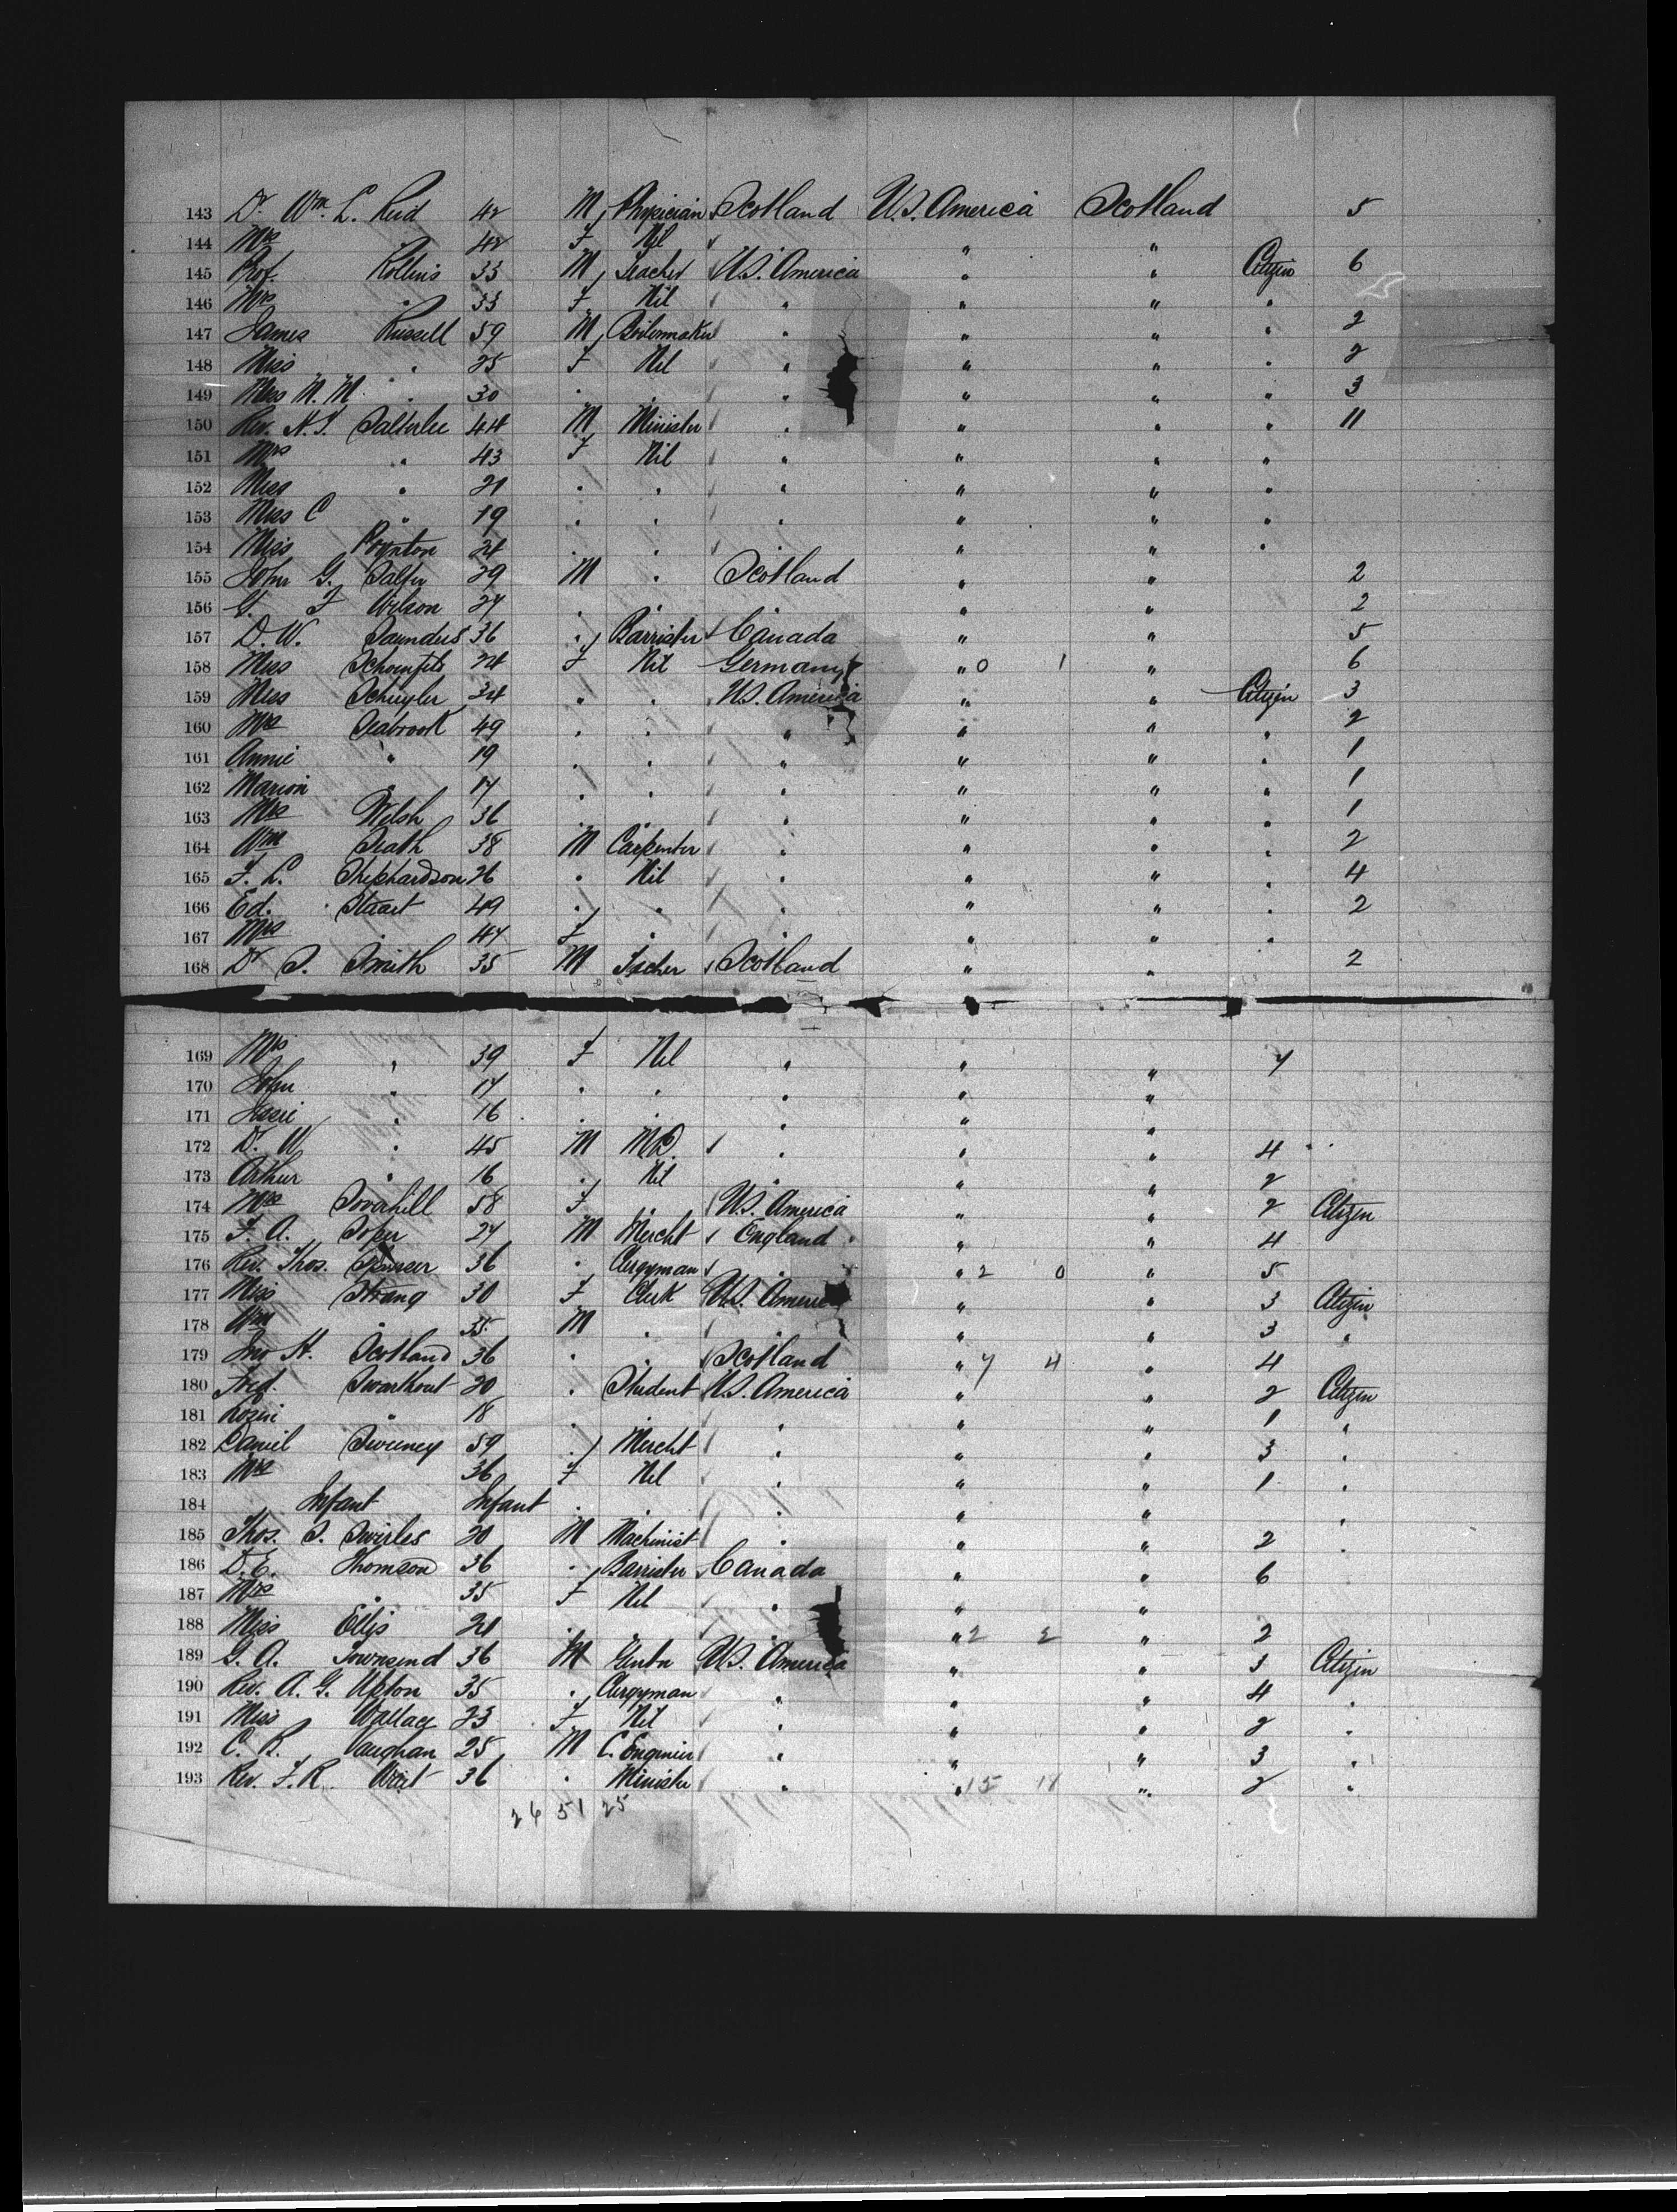 143 Dr. Wm. L. Reid 42 M Physician Scotland U.S. America Scotland 5
144 Mrs " 42 F Nil " " "
145 Prof. Rollins 33 M Teacher U.S. America " " Citizen 6
146 Mrs " 33 F Nil " " " "
147 James Russell 59 M Boilermaker " " " " 2
148 Miss " 25 F Nil " " " " 2
149 Miss M. M. " 30 " " " " " " 3
150 Rev. H. Y. Satterlee 44 M Minister " " " " 11
151 Mrs " 43 F Nil " " " "
152 Miss " 21 " " " " " "
153 Miss C " 19 " " " " " "
154 Miss Poynton 24 " " " " " "
155 John G. Salter 29 M " Scotland " " 2
156 F Wilson 27 " " " " " 2
157 D. W. Saunders 36 " Barrister Canada " " 5
158 Miss 24 F Nil Germany " 0 1 " 6
159 Miss Schuyler 34 " " U.S. America " " Citizen 3
160 Mrs Seabrook 49 " " " " " " 2
161 Annie " 19 " " " " " " 1
162 Marion " 17 " " " " " " 1
163 Mrs Welsh 36 " " " " " " 1
164 Wm Seath 38 M Carpenter " " " " 2
165 F. L. Shephardson 26 " Nil " " " " 4
166 Ed. Stuart 49 " " " " " " 2
167 Mrs " 47 F " " " " "
168 Dr S. Smith 35 M Scotland " " 2
169 Mrs " 39 F Nil " " " 7
170 John " 17 " " " " "
171 " 16 " " " " "
172 Dr. W " 45 M M.D. " " " 4
173 Arthur " 16 " Nil " " " 2
174 Mrs 58 F " U.S. America " " 2 Citizen
175 F. A. Soper 27 M Mercht England " " 4
176 Rev. Thos. Spencer 36 " Clergyman " " 2 0 " 5
177 Miss Strang 30 F Clerk U.S. America " " 3 Citizen
178 Wm " 35 M " " " " 3 "
179 Jno H. Scotland 36 " " Scotland " 7 4 " 4
180 Fred. Swarthout 20 " Student U.S. America " " 2 Citizen
181 " 18 " " " " " 1 "
182 Daniel Sweeney 59 " Mercht " " " 3 "
183 Mrs 36 F Nil " " " 1 "
184 Infant Infant " " " " " "
185 Thos. S. Swirles 20 M Machinist " " " 2 "
186 D. E. Thomson 36 " Barrister Canada " " 6
187 Mrs " 35 F Nil " " "
188 Miss Ellis 21 " " " " 2 2 " 2
189 G. A. Townsend 36 M U.S. America " " 3 Citizen
190 Rev. A. G. Upton 35 " Clergyman " " " 4 "
191 Miss Wallace 23 F Nil " " " 2 "
192 C. R. Vaughan 25 M C. Engineer " " " 3 "
193 Rev. F. R. 36 " Minister " " 15 " 2 "
26 51 25